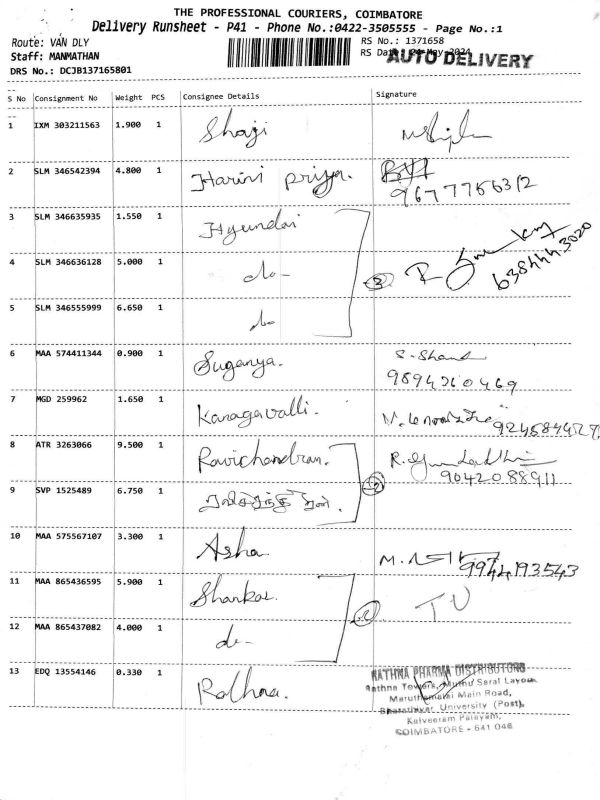 THE PROFESSIONAL COURIERS, COIMBATORE
Delivery Runsheet - P41 - Phone No.:0422-3505555 - Page No.:1
Route: VAN DLY
RS No.: 1371658
Staff: MANMATHAN
RS Date: 24-May-2024
AUTO DELIVERY
DRS No.: DCJB137165801
S No Consignment No Weight PCS Consignee Details Signature
1 IXM 303211563 1.900 1 Shaji
2 SLM 346542394 4.800 1 Harini Priya.
9677756312
3 SLM 346635935 1.550 1 Hyundai
4 SLM 346636128 5.000 1 do- 3
6384443020
5 SLM 346555999 6.650 1 do
6 MAA 574411344 0.900 1 Suganya.
9894260469
7 MGD 259962 1.650 1 Kanagavalli.
8 ATR 3263066 9.500 1 Ravichandran.
9042088911
2
9 SVP 1525489 6.750 1 ரவிச்சந்திரன்.
10 MAA 575567107 3.300 1 Asha
9944193543
11 MAA 865436595 5.900 1 Shankar.
2 TU
12 MAA 865437082 4.000 1 do-
13 EDQ 13554146 0.330 1 Rathna.
RATHNA PHARMA DISTRIBUTORS
Rathna Towers, Muthu Saral Layout
Maruthamalai Main Road,
Bharathiyar University (Post),
Kalveeram Palayam,
COIMBATORE - 641 046